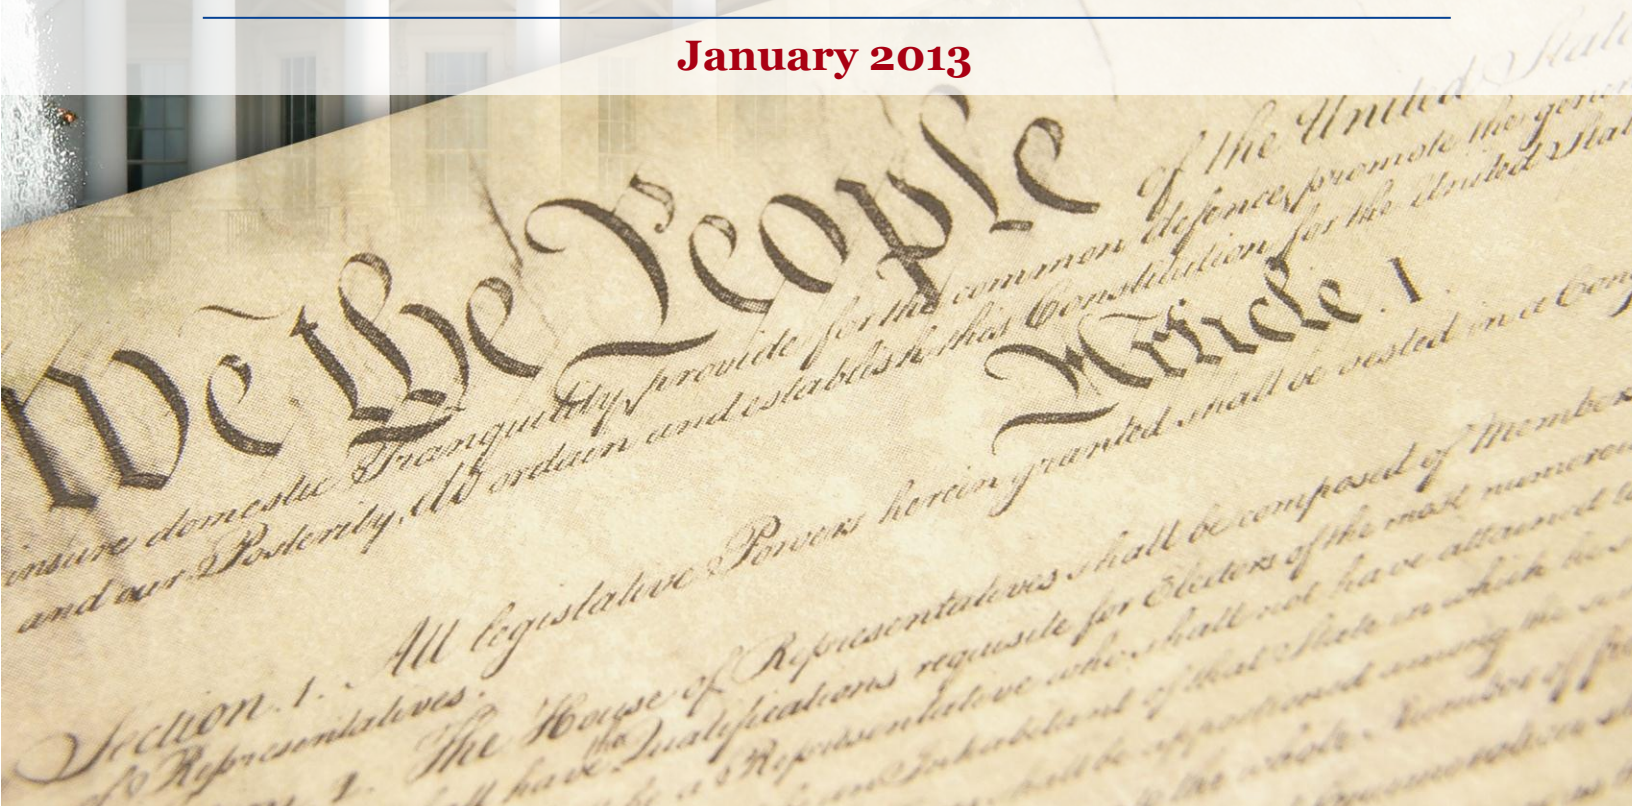 January 2013
of the United State
We the People
insure domestic Tranquility, provide for the common defence, promote the gener
and our Posterity, do ordain and establish this Constitution for the United Stat
Article. I.
Section. 1. All legislative Powers herein granted shall be vested in a Cong
of Representatives.
The House of Representatives shall be composed of Member
shall have the Qualifications requisite for Electors of the most numerou
be a Representative who shall not have attained to
an Inhabitant of that State in which he
shall be apportioned among the
to the whole Number of